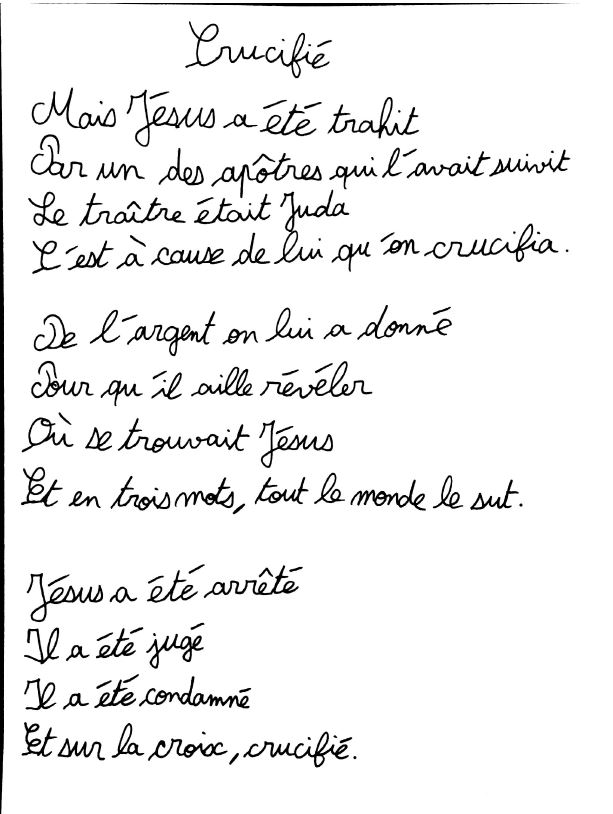 Crucifié
Mais Jésus a été trahit
Par un des apôtres qui l'avait suivit
Le traître était Juda
C'est à cause de lui qu'on crucifia.
De l'argent on lui a donné
Pour qu'il aille révéler
Où se trouvait Jésus
Et en trois mots, tout le monde le sut.
Jésus a été arrêté
Il a été jugé
Il a été condamné
Et sur la croix, crucifié.